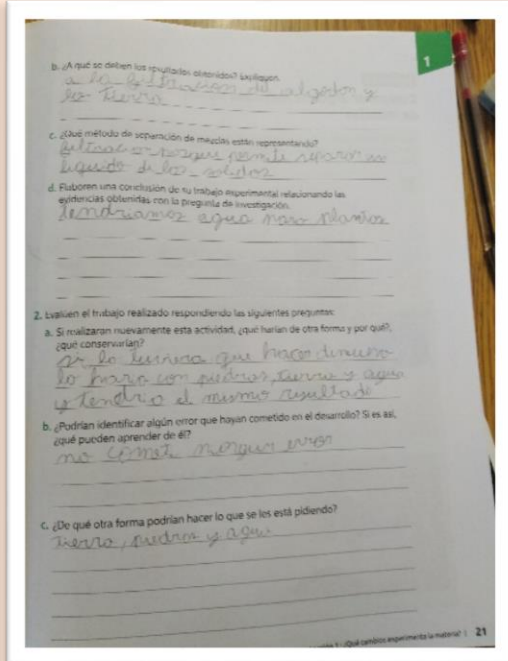 1
b. ¿A qué se deben los resultados obtenidos? Expliquen.
a la filtracion de algodon y
la tierra
c. ¿Qué método de separación de mezclas están representando?
filtracion porque permite separar un
liquido de los solidos
d. Elaboren una conclusión de su trabajo experimental relacionando las
evidencias obtenidas con la pregunta de investigación.
tendriamos agua para plantas
2. Evalúen el trabajo realizado respondiendo las siguientes preguntas:
a. Si realizaran nuevamente esta actividad, ¿qué harían de otra forma y por qué?,
¿qué conservarían?
si lo tuviera que hacer denuevo
lo haria con piedras, tierra y agua
y tendria el mismo resultado
b. ¿Podrían identificar algún error que hayan cometido en el desarrollo? Si es así,
¿qué pueden aprender de él?
no cometi error
c. ¿De qué otra forma podrían hacer lo que se les está pidiendo?
tierra, piedras y agua
1 · ¿Qué cambios experimenta la materia? | 21